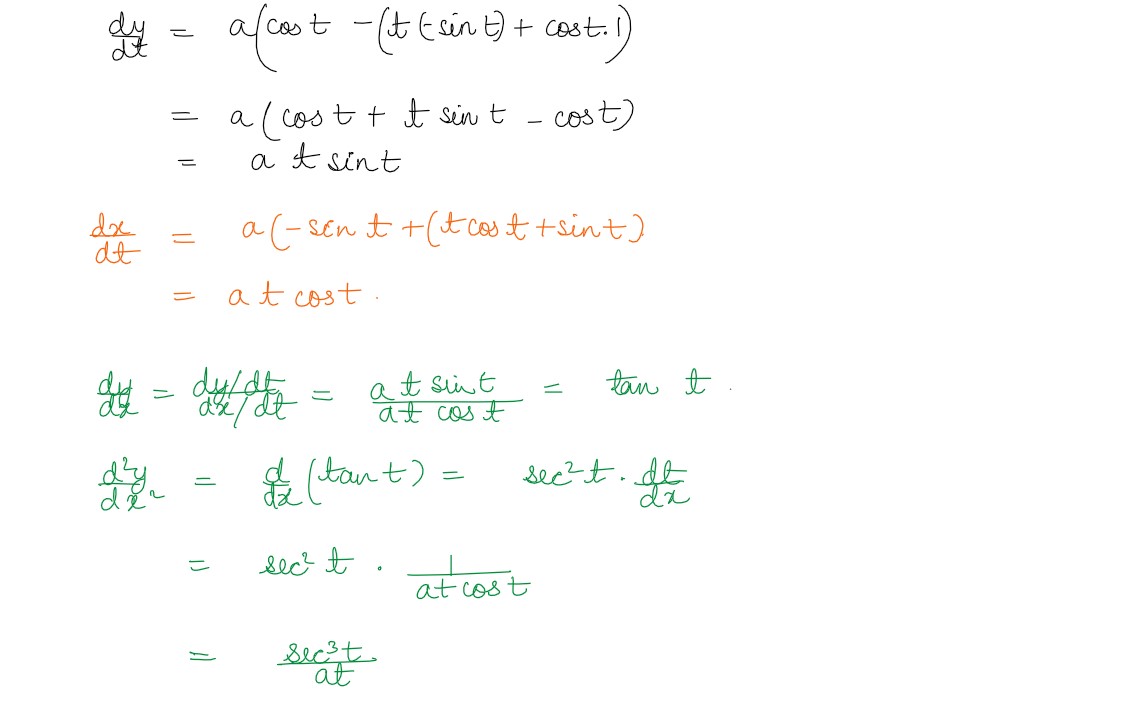 dy/dt = a(cos t - (t (-sin t) + cos t. 1)
= a (cos t + t sin t - cos t)
= a t sin t
dx/dt = a (-sin t + (t cos t + sin t)
= a t cos t .
dy/dx = dy/dt / dx/dt = a t sin t / a t cos t = tan t .
d²y/dx² = d/dx (tan t) = sec² t . dt/dx
= sec² t . 1/at cos t
= sec³ t/at